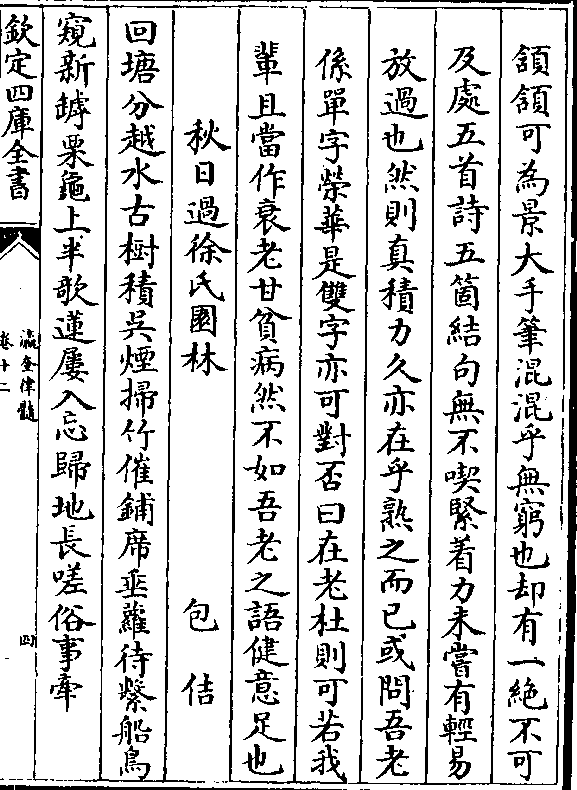 頷頷可為景大手筆混混乎無窮也却有一絶不可
及處五首詩五箇結句無不喫緊着力未嘗有輕易
放過也然則真積力久亦在乎熟之而已或問吾老
係單字榮華是雙字亦可對否曰在老杜則可若我
輩且當作衰老甘貧病然不如吾老之語健意足也
秋日過徐氏園林 包佶
回塘分越水古樹積吳煙掃竹催鋪席垂蘿待繫船鳥
窺新罅栗龜上半欹蓮屢入忘歸地長嗟俗事牽
欽定四庫全書
瀛奎律髓
卷十二
四